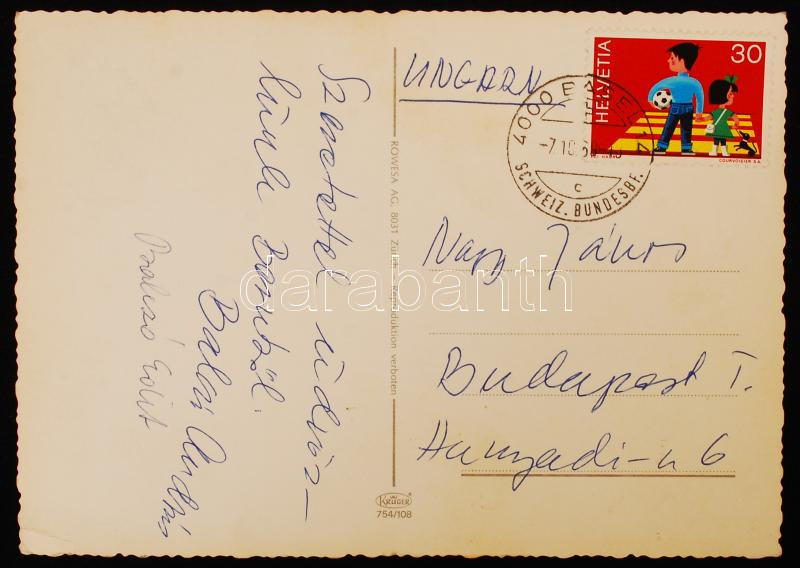 Szeretettel üdvöz-
lünk Bernből.
Balás András
Edit
ROWESA AG, 8031 Zürich – Reproduktion verboten
KRÜGER
754/108
UNGARN
HELVETIA
30
COURVOISIER S.A.
4000 BASEL
-7.10.
C
SCHWEIZ. BUNDESBF.
Nagy János
Budapest I.
Hunyadi-u 6
darabanth